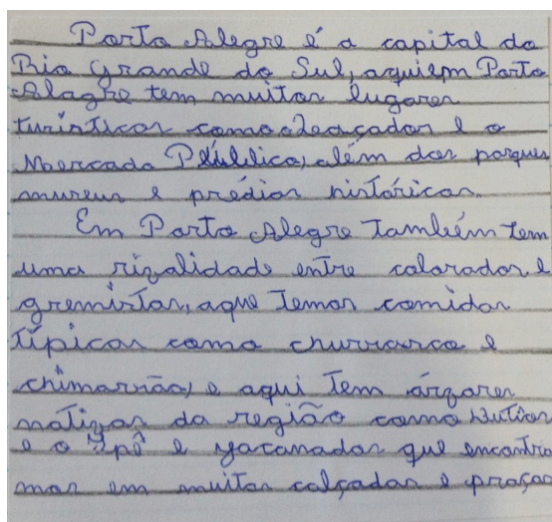 Porto Alegre é a capital do
Rio Grande do Sul, aqui em Porto
Alagre tem muitos lugares
turísticos como o
Mercado Público, além dos parques
museus e prédios históricos.
Em Porto Alegre Também tem
uma rivalidade entre colorados e
gremistas, aque Temos comidas
típicas como churrasco e
chimarrão, e aqui Tem árvores
nativas da região como Butias
e o Ipê e jacanadas que encontra
mos em muitas calçadas e praças